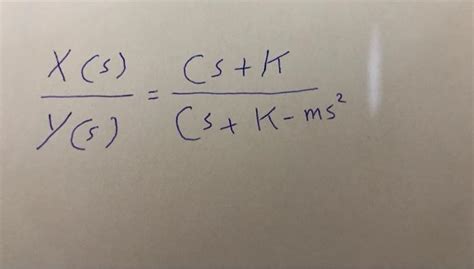 X(s)/Y(s) = (Cs+K)/(Cs+K-ms²)